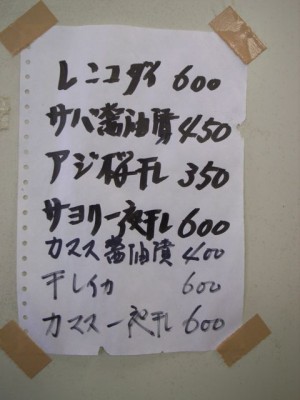 レンコダイ 600
サバ醤油漬 450
アジ桜干し 350
サヨリ一夜干し 600
カマス醤油漬 400
干しイカ 600
カマス一夜干し 600